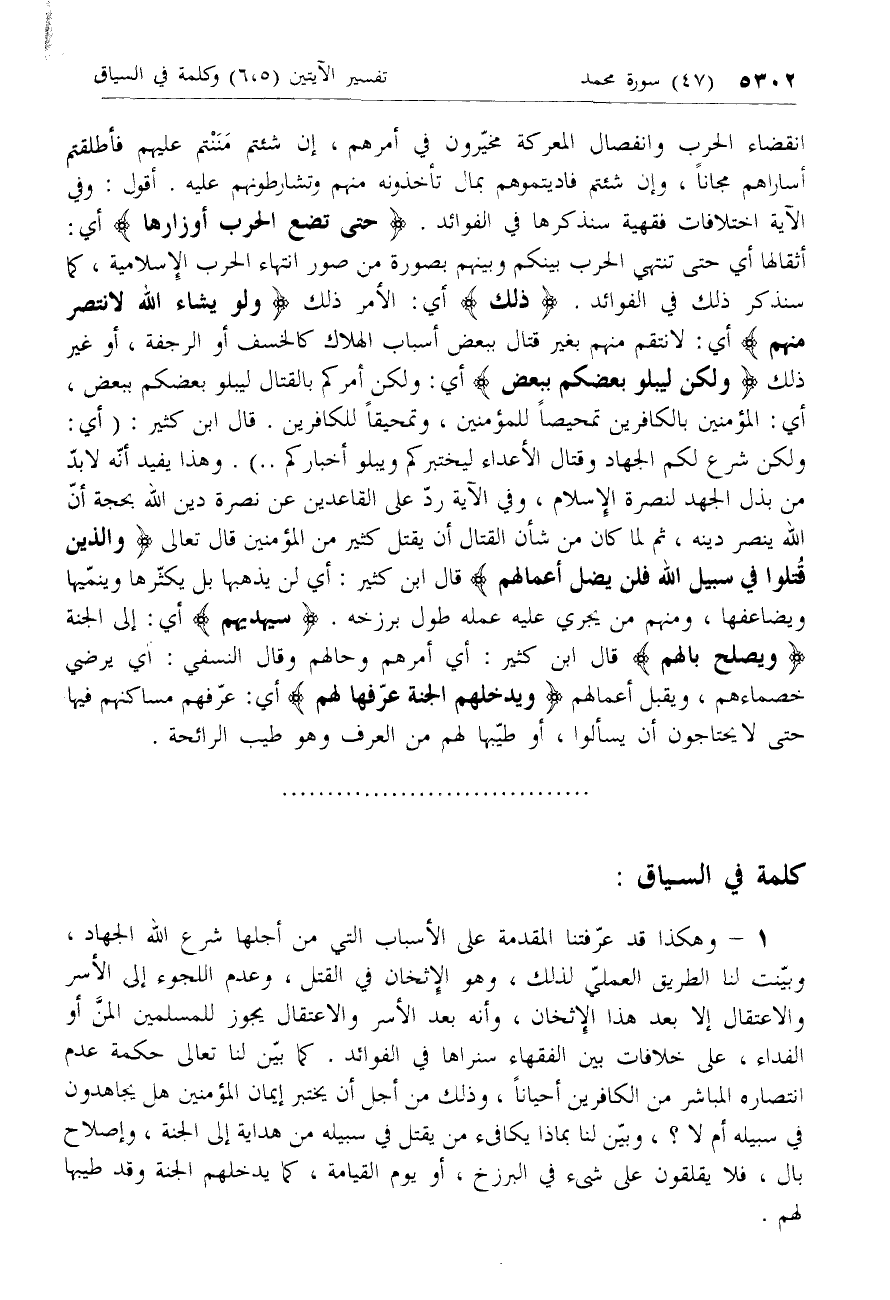 ٥٣٠٢ (٤٧) سورة محمد تفسير الآيتين (٦،٥) وكلمة في السياق
انقضاء الحرب وانفصال المعركة مخيّرون في أمرهم ، إن شئتم مَنَنْتم عليهم فأطلقتم
أساراهم مجاناً ، وإن شئتم فاديتموهم بمال تأخذونه منهم وتشارطونهم عليه . أقول : وفي
الآية اختلافات فقهية سنذكرها في الفوائد . ﴿ حتى تضع الحرب أوزارها ﴾ أي:
أثقالها أي حتى تنتهي الحرب بينكم وبينهم بصورة من صور انتهاء الحرب الإسلامية ، كما
سنذكر ذلك في الفوائد . ﴿ ذلك ﴾ أي: الأمر ذلك ﴿ ولو يشاء الله لانتصر
منهم ﴾ أي: لانتقم منهم بغير قتال ببعض أسباب الهلاك كالخسف أو الرجفة ، أو غير
ذلك ﴿ ولكن ليبلو بعضكم ببعض ﴾ أي: ولكن أمركم بالقتال ليبلو بعضكم ببعض ،
أي: المؤمنين بالكافرين تمحيصاً للمؤمنين ، وتمحيقاً للكافرين . قال ابن كثير : ( أي:
ولكن شرع لكم الجهاد وقتال الأعداء ليختبركم ويبلو أخباركم ..) . وهذا يفيد أنّه لابدّ
من بذل الجهد لنصرة الإسلام ، وفي الآية ردّ على القاعدين عن نصرة دين الله بحجة أنّ
الله ينصر دينه ، ثم لما كان من شأن القتال أن يقتل كثير من المؤمنين قال تعالى ﴿ والذين
قُتلوا في سبيل الله فلن يضل أعمالهم ﴾ قال ابن كثير : أي لن يذهبها بل يكثّرها وينمّيها
ويضاعفها ، ومنهم من يجري عليه عمله طول برزخه . ﴿ سيهديهم ﴾ أي: إلى الجنة
﴿ ويصلح بالهم ﴾ قال ابن كثير : أي أمرهم وحالهم وقال النسفي : أي يرضي
خصماءهم ، ويقبل أعمالهم ﴿ ويدخلهم الجنة عرّفها لهم ﴾ أي: عرّفهم مساكنهم فيها
حتى لايحتاجون أن يسألوا ، أو طيّبها لهم من العرف وهو طيب الرائحة .
..................................
كلمة في السياق :
١ – وهكذا قد عرّفتنا المقدمة على الأسباب التي من أجلها شرع الله الجهاد ،
وبيّنت لنا الطريق العمليّ لذلك ، وهو الإثخان في القتل ، وعدم اللجوء إلى الأسر
والاعتقال إلا بعد هذا الإثخان ، وأنه بعد الأسر والاعتقال يجوز للمسلمين المنَّ أو
الفداء ، على خلافات بين الفقهاء سنراها في الفوائد . كما بيّن لنا تعالى حكمة عدم
انتصاره المباشر من الكافرين أحياناً ، وذلك من أجل أن يختبر إيمان المؤمنين هل يجاهدون
في سبيله أم لا ؟ ، وبيّن لنا بماذا يكافىء من يقتل في سبيله من هداية إلى الجنة ، وإصلاح
بال ، فلا يقلقون على شىء في البرزخ ، أو يوم القيامة ، كما يدخلهم الجنة وقد طيبها
لهم .